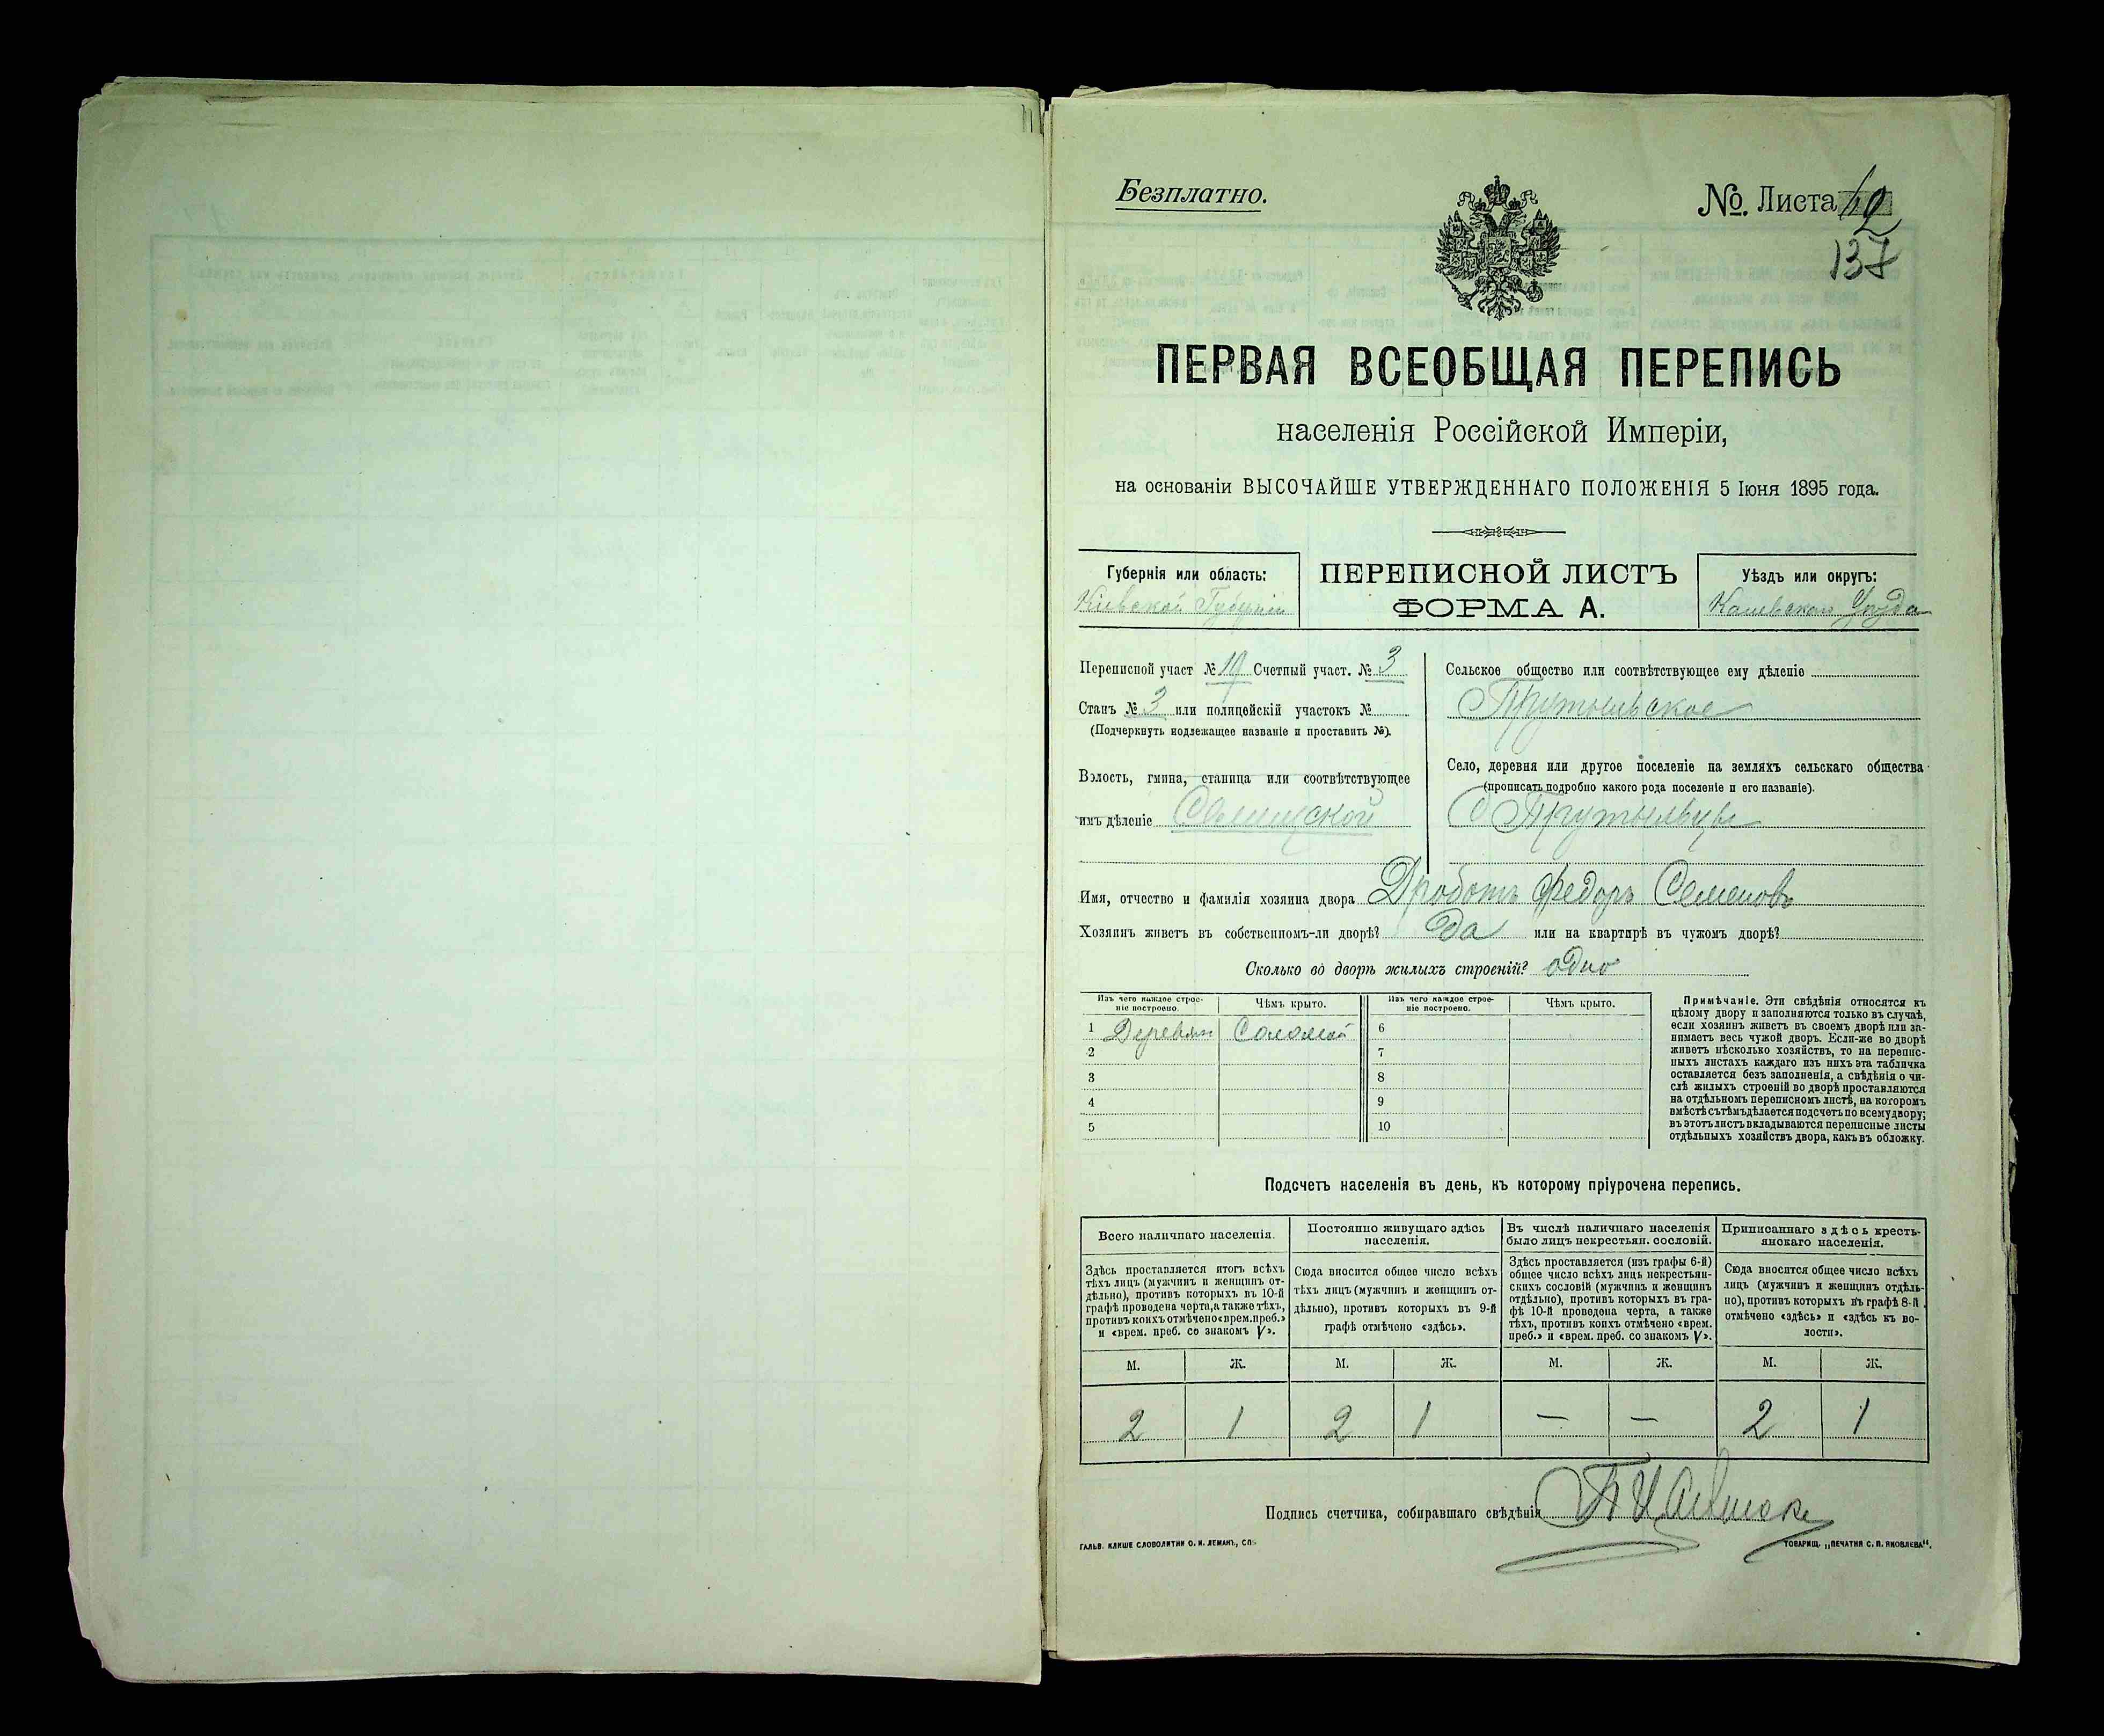 Безплатно.
№. Листа 62
137
ПЕРВАЯ ВСЕОБЩАЯ ПЕРЕПИСЬ
населенія Россійской Имперіи,
на основаніи ВЫСОЧАЙШЕ УТВЕРЖДЕННАГО ПОЛОЖЕНІЯ 5 Іюня 1895 года.
Губернія или область:
Кіевской Губерніи
ПЕРЕПИСНОЙ ЛИСТЪ
ФОРМА А.
Уѣздъ или округъ:
Каневскаго Уѣзда
Переписной участ № 19 Счетный участ. № 3
Станъ № 3 или полицейскій участокъ №
(Подчеркнуть подлежащее названіе и проставить №).
Волость, гмина, станица или соотвѣтствующее
имъ дѣленіе
Сельское общество или соотвѣтствующее ему дѣленіе
Село, деревня или другое поселеніе на земляхъ сельскаго общества
(прописать подробно какого рода поселеніе и его названіе).
Имя, отчество и фамилія хозяина двора Дроботъ Федоръ Семеновъ
Хозяинъ живетъ въ собственномъ-ли дворѣ? Да или на квартирѣ въ чужомъ дворѣ?
Сколько во дворѣ жилыхъ строеній? одно
Изъ чего каждое строе-
ніе построено.
Чѣмъ крыто.
Изъ чего каждое строе-
ніе построено.
Чѣмъ крыто.
1 Деревян Соломой 6
2 7
3 8
4 9
5 10
Примѣчаніе. Эти свѣдѣнія относятся къ
цѣлому двору и заполняются только въ случаѣ,
если хозяинъ живетъ въ своемъ дворѣ или за-
нимаетъ весь чужой дворъ. Если-же во дворѣ
живетъ нѣсколько хозяйствъ, то на перепис-
ныхъ листахъ каждаго изъ нихъ эта табличка
оставляется безъ заполненія, а свѣдѣнія о чи-
слѣ жилыхъ строеній во дворѣ проставляются
на отдѣльномъ переписномъ листѣ, на которомъ
вмѣстѣ съ тѣмъ дѣлается подсчетъ по всему двору;
въ этотъ листъ вкладываются переписные листы
отдѣльныхъ хозяйствъ двора, какъ въ обложку.
Подсчетъ населенія въ день, къ которому пріурочена перепись.
Всего наличнаго населенія.
Здѣсь проставляется итогъ всѣхъ
тѣхъ лицъ (мужчинъ и женщинъ от-
дѣльно), противъ которыхъ въ 10-й
графѣ проведена черта, а также тѣхъ,
противъ коихъ отмѣчено «врем. преб.»
и «врем. преб. со знакомъ V».
Постоянно живущаго здѣсь
населенія.
Сюда вносится общее число всѣхъ
тѣхъ лицъ (мужчинъ и женщинъ от-
дѣльно), противъ которыхъ въ 9-й
графѣ отмѣчено «здѣсь».
Въ числѣ наличнаго населенія
было лицъ некрестьян. сословій.
Здѣсь проставляется (изъ графы 6-й)
общее число всѣхъ лицъ некрестьян-
скихъ сословій (мужчинъ и женщинъ
отдѣльно), противъ которыхъ въ гра-
фѣ 10-й проведена черта, а также
тѣхъ, противъ коихъ отмѣчено «врем.
преб.» и «врем. преб. со знакомъ V».
Приписаннаго здѣсь кресть-
янскаго населенія.
Сюда вносится общее число всѣхъ
лицъ (мужчинъ и женщинъ отдѣль-
но), противъ которыхъ въ графѣ 8-й
отмѣчено «здѣсь» и «здѣсь къ во-
лости».
М. Ж. М. Ж. М. Ж. М. Ж.
2 1 2 1 — — 2 1
Подпись счетчика, собиравшаго свѣдѣнія
ГАЛЬВ. КЛИШЕ СЛОВОЛИТНИ О. И. ЛЕМАНЪ, СПБ.
ТОВАРИЩ. „ПЕЧАТНЯ С. П. ЯКОВЛЕВА".